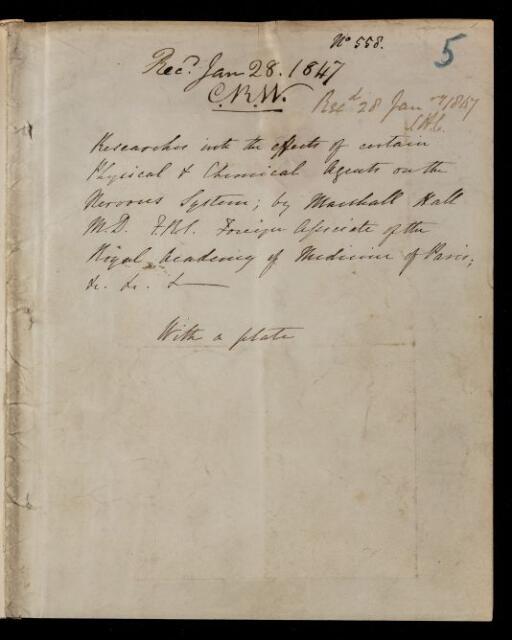 No 558.
5
Recd. Jan 28. 1847
C.R.W.
Recd 28 Jany 1847
Researches into the effects of certain
Physical & Chemical Agents on the
Nervous System; by Marshall Hall
M.D. F.R.S. Foreign Associate of the
Royal Academy of Medicine of Paris;
&c. &c. &c
With a plate